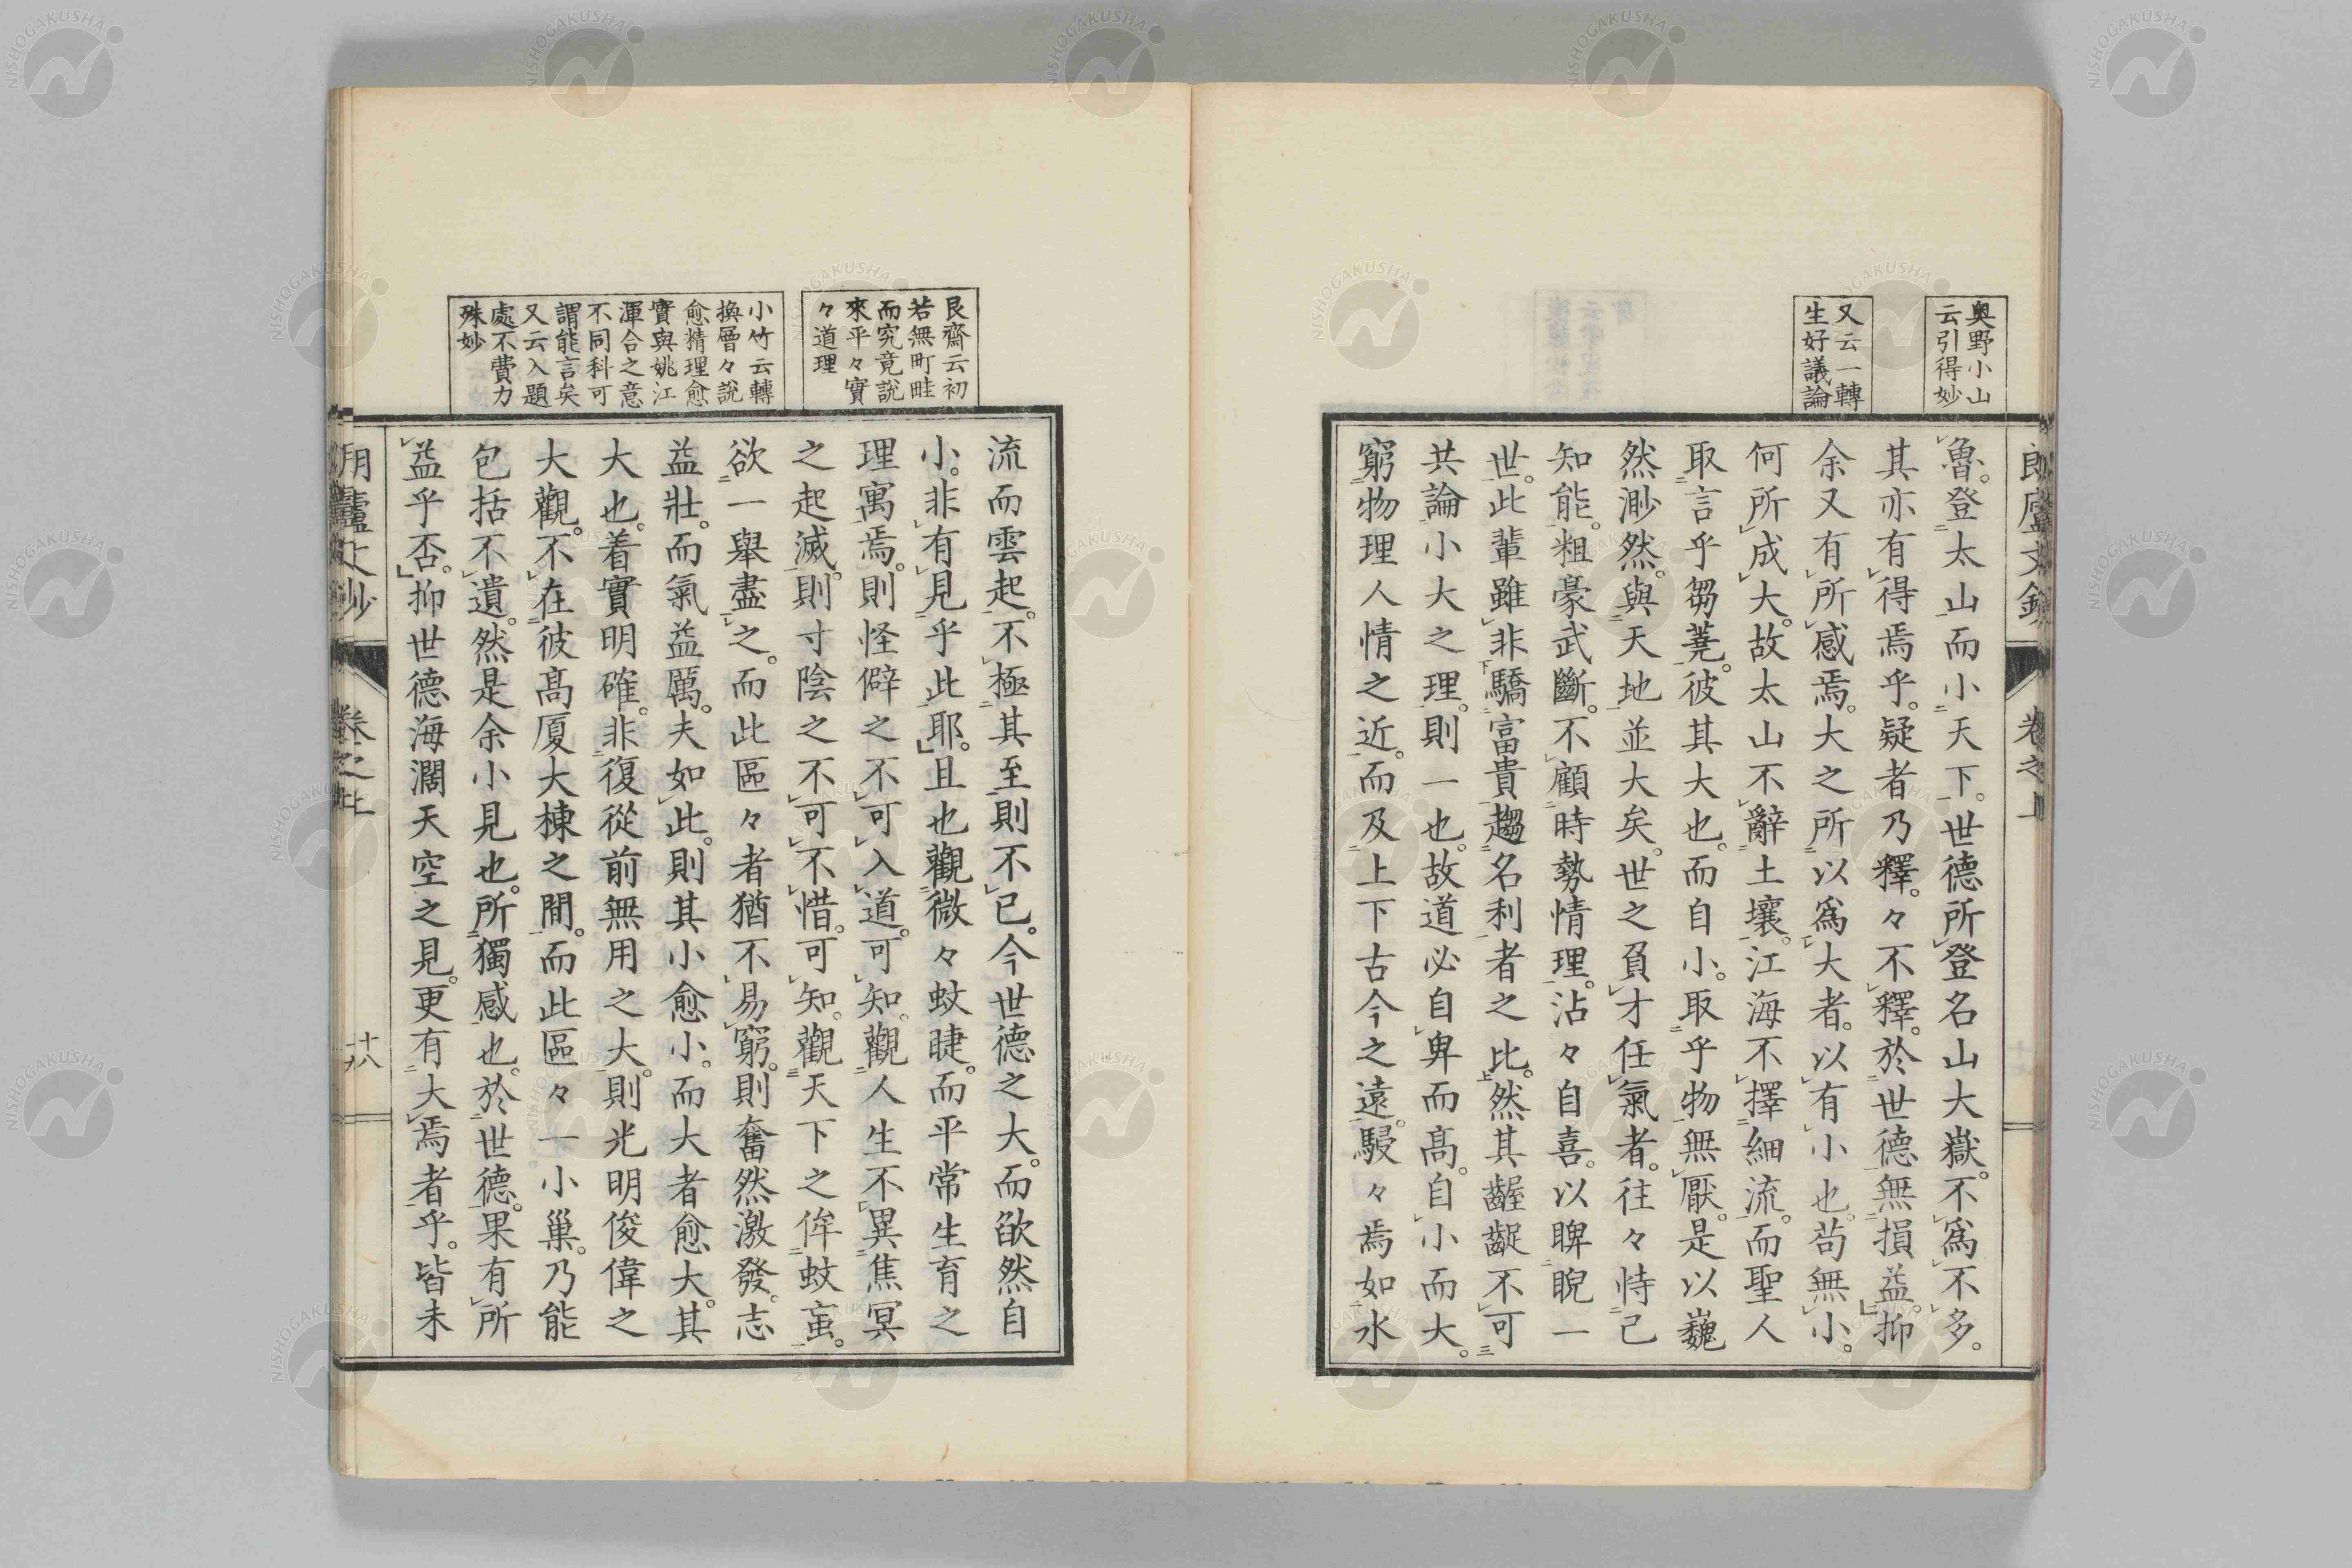 奧野小山
云引得妙
又云一轉
生好議論
魯。登太山而小天下。世德所登名山大嶽。不爲不多。
其亦有得焉乎。疑者乃釋。々不釋。於世德無損益。抑
余又有所感焉。大之所以爲大者。以有小也。苟無小。
何所成大。故太山不辭土壤。江海不擇細流。而聖人
取言乎芻蕘。彼其大也。而自小。取乎物無厭。是以巍
然渺然。與天地並大矣。世之負才任氣者。往々恃己
知能。粗豪武斷。不顧時勢情理。沾々自喜。以睥睨一
世。此輩雖非驕富貴趨名利者之比。然其齷齪不可
共論小大之理。則一也。故道必自卑而高。自小而大。
窮物理人情之近。而及上下古今之遠。駸々焉如水
艮齋云初
若無町畦
而究竟說
來平々實
々道理
小竹云轉
換層々說
愈精理愈
實與姚江
渾合之意
不同科可
謂能言矣
又云入題
處不費力
殊妙
流而雲起。不極其至則不已。今世德之大。而欿然自
小。非有見乎此耶。且也觀微々蚊睫。而平常生育之
理寓焉。則怪僻之不可入道。可知。觀人生不異焦冥
之起滅。則寸陰之不可不惜。可知。觀天下之侔蚊䖟。
欲一舉盡之。而此區々者猶不易窮。則奮然激發。志
益壯。而氣益厲。夫如此。則其小愈小。而大者愈大。其
大也。着實明確。非復從前無用之大。則光明俊偉之
大觀。不在彼高厦大棟之間。而此區々一小巢。乃能
包括不遺。然是余小見也。所獨感也。於世德。果有所
益乎否。抑世德海濶天空之見。更有大焉者乎。皆未
卷之上
十八
NISHOGAKUSHA